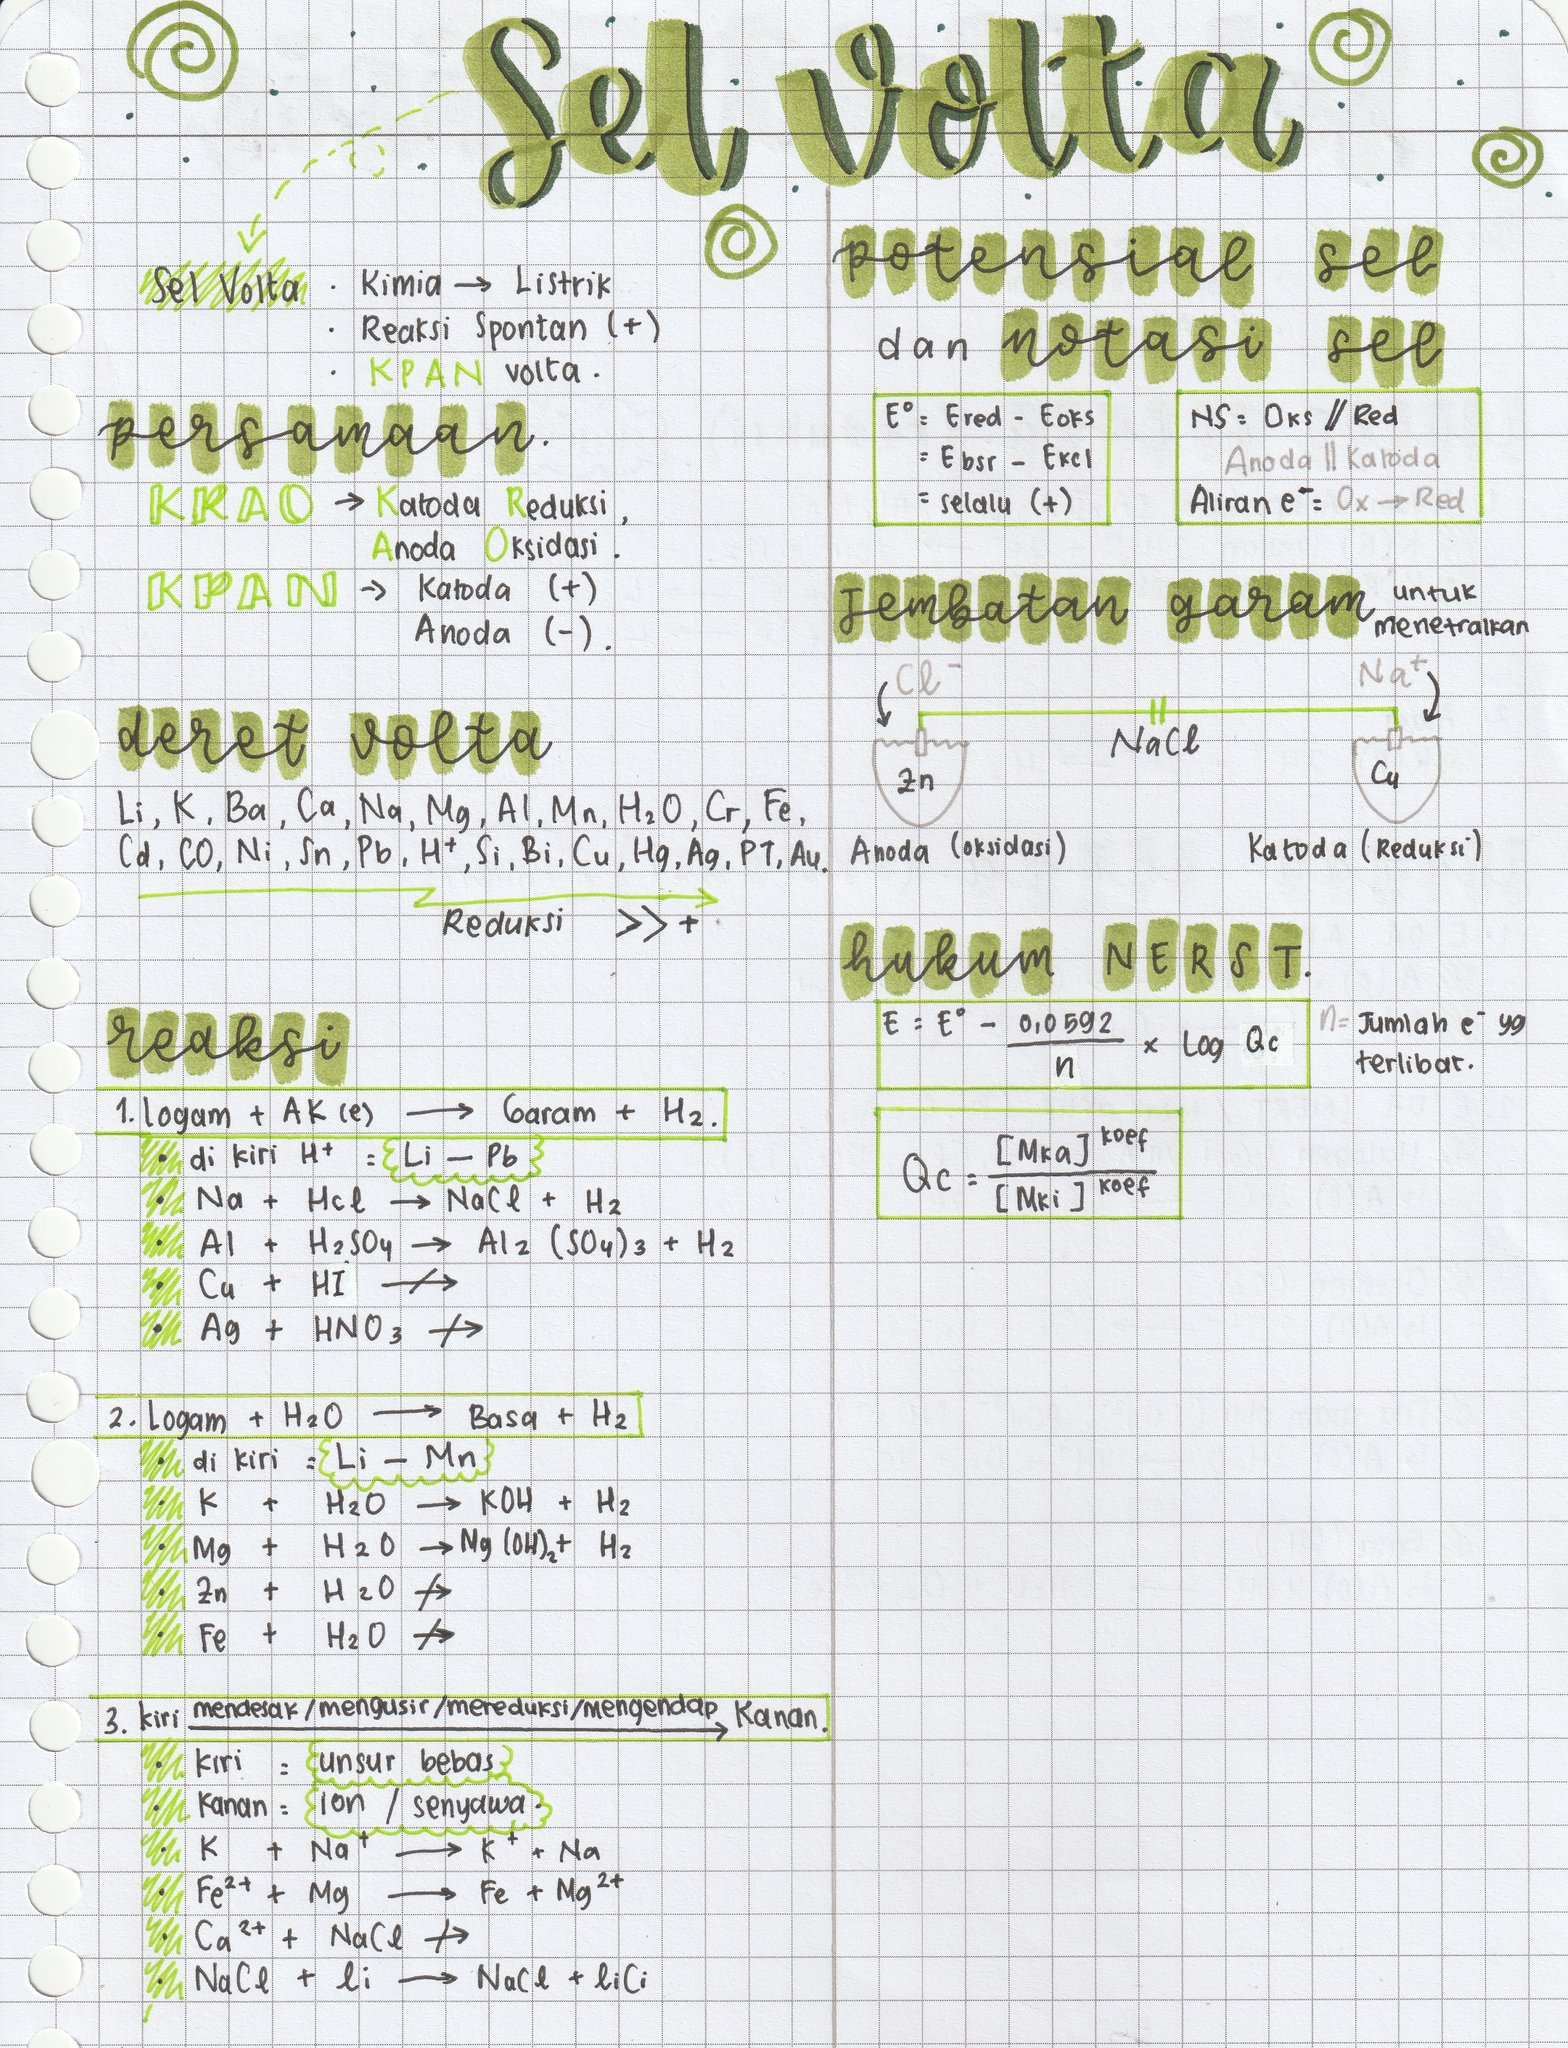 Sel Volta
Sel Volta · Kimia → Listrik
· Reaksi Spontan (+)
· KPAN volta.
persamaan.
KRAO → Katoda Reduksi,
Anoda Oksidasi.
KPAN → Katoda (+)
Anoda (-).
deret volta
Li, K, Ba, Ca, Na, Mg, Al, Mn, H₂O, Cr, Fe,
Cd, CO, Ni, Sn, Pb, H⁺, Si, Bi, Cu, Hg, Ag, PT, Au.
Reduksi >> +
reaksi
1. Logam + AK (e) → Garam + H₂.
· di kiri H⁺ = Li - Pb
· Na + HCl → NaCl + H₂
· Al + H₂SO₄ → Al₂ (SO₄)₃ + H₂
· Cu + HI ↛
· Ag + HNO₃ ↛
2. Logam + H₂O → Basa + H₂
· di kiri = Li - Mn
· K + H₂O → KOH + H₂
· Mg + H₂O → Mg (OH)₂ + H₂
· Zn + H₂O ↛
· Fe + H₂O ↛
3. kiri mendesak/mengusir/mereduksi/mengendap → Kanan.
· kiri = unsur bebas
· Kanan = ion / senyawa.
· K + Na⁺ → K⁺ + Na
· Fe²⁺ + Mg → Fe + Mg²⁺
· Ca²⁺ + NaCl ↛
· NaCl + li → NaCl + liCi
potensial sel
dan notasi sel
E° = Ered - Eoks
= Ebsr - Ekcl
= selalu (+)
NS = Oks // Red
Anoda || Katoda
Aliran e⁻ = Ox → Red
Jembatan garam untuk
menetralkan
Cl⁻ Na⁺
NaCl
Zn Cu
Anoda (oksidasi) Katoda (Reduksi)
hukum NERST.
E = E° - 0,0592 / n × Log Qc
n = Jumlah e⁻ yg
terlibat.
Qc = [Mka]ᵏᵒᵉᶠ / [Mki]ᵏᵒᵉᶠ